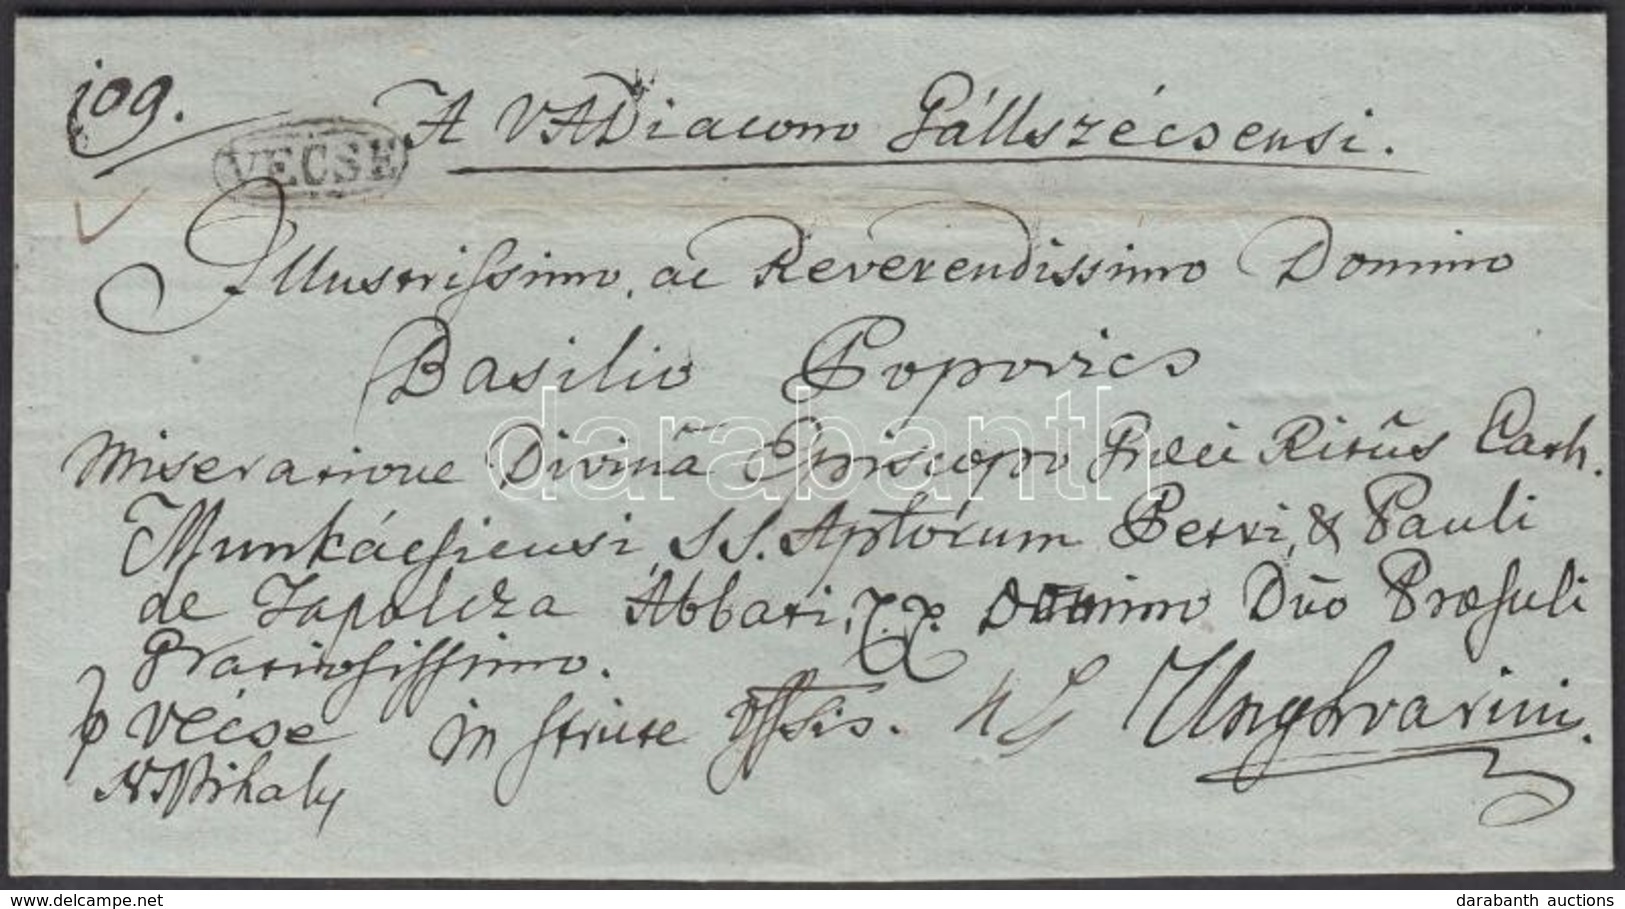 109.
VÉCSE
A VADiacono Gállszécsensi.
Illustrissimo, ac Reverendissimo Domino
Basilio Popovics
Miseratione Divinâ Episcopo Graeci Ritûs Cath.
Munkácsiensi, SS. Aptorum Petri, & Pauli
de Tapolcza Abbati, Domino Dño Praesuli
Gratiosissimo.
p Vécse in stricte Offsis. Unghvarini.
N Mihaly
darabanth
delcampe.net
darabanth auctions